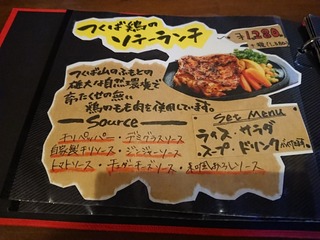 つくば鶏の
ソテーランチ
¥1280.
つくば山のふもとの
雄大な自然環境で
育ったくせの無い
鶏のもも肉を使用しています。
Source
チリペッパー・デミグラスソース
自家製チリソース・ジンジャーソース
トマトソース・チェダーチーズソース・和風おろしソース
Set Menu
ライス・サラダ
スープ・ドリンク